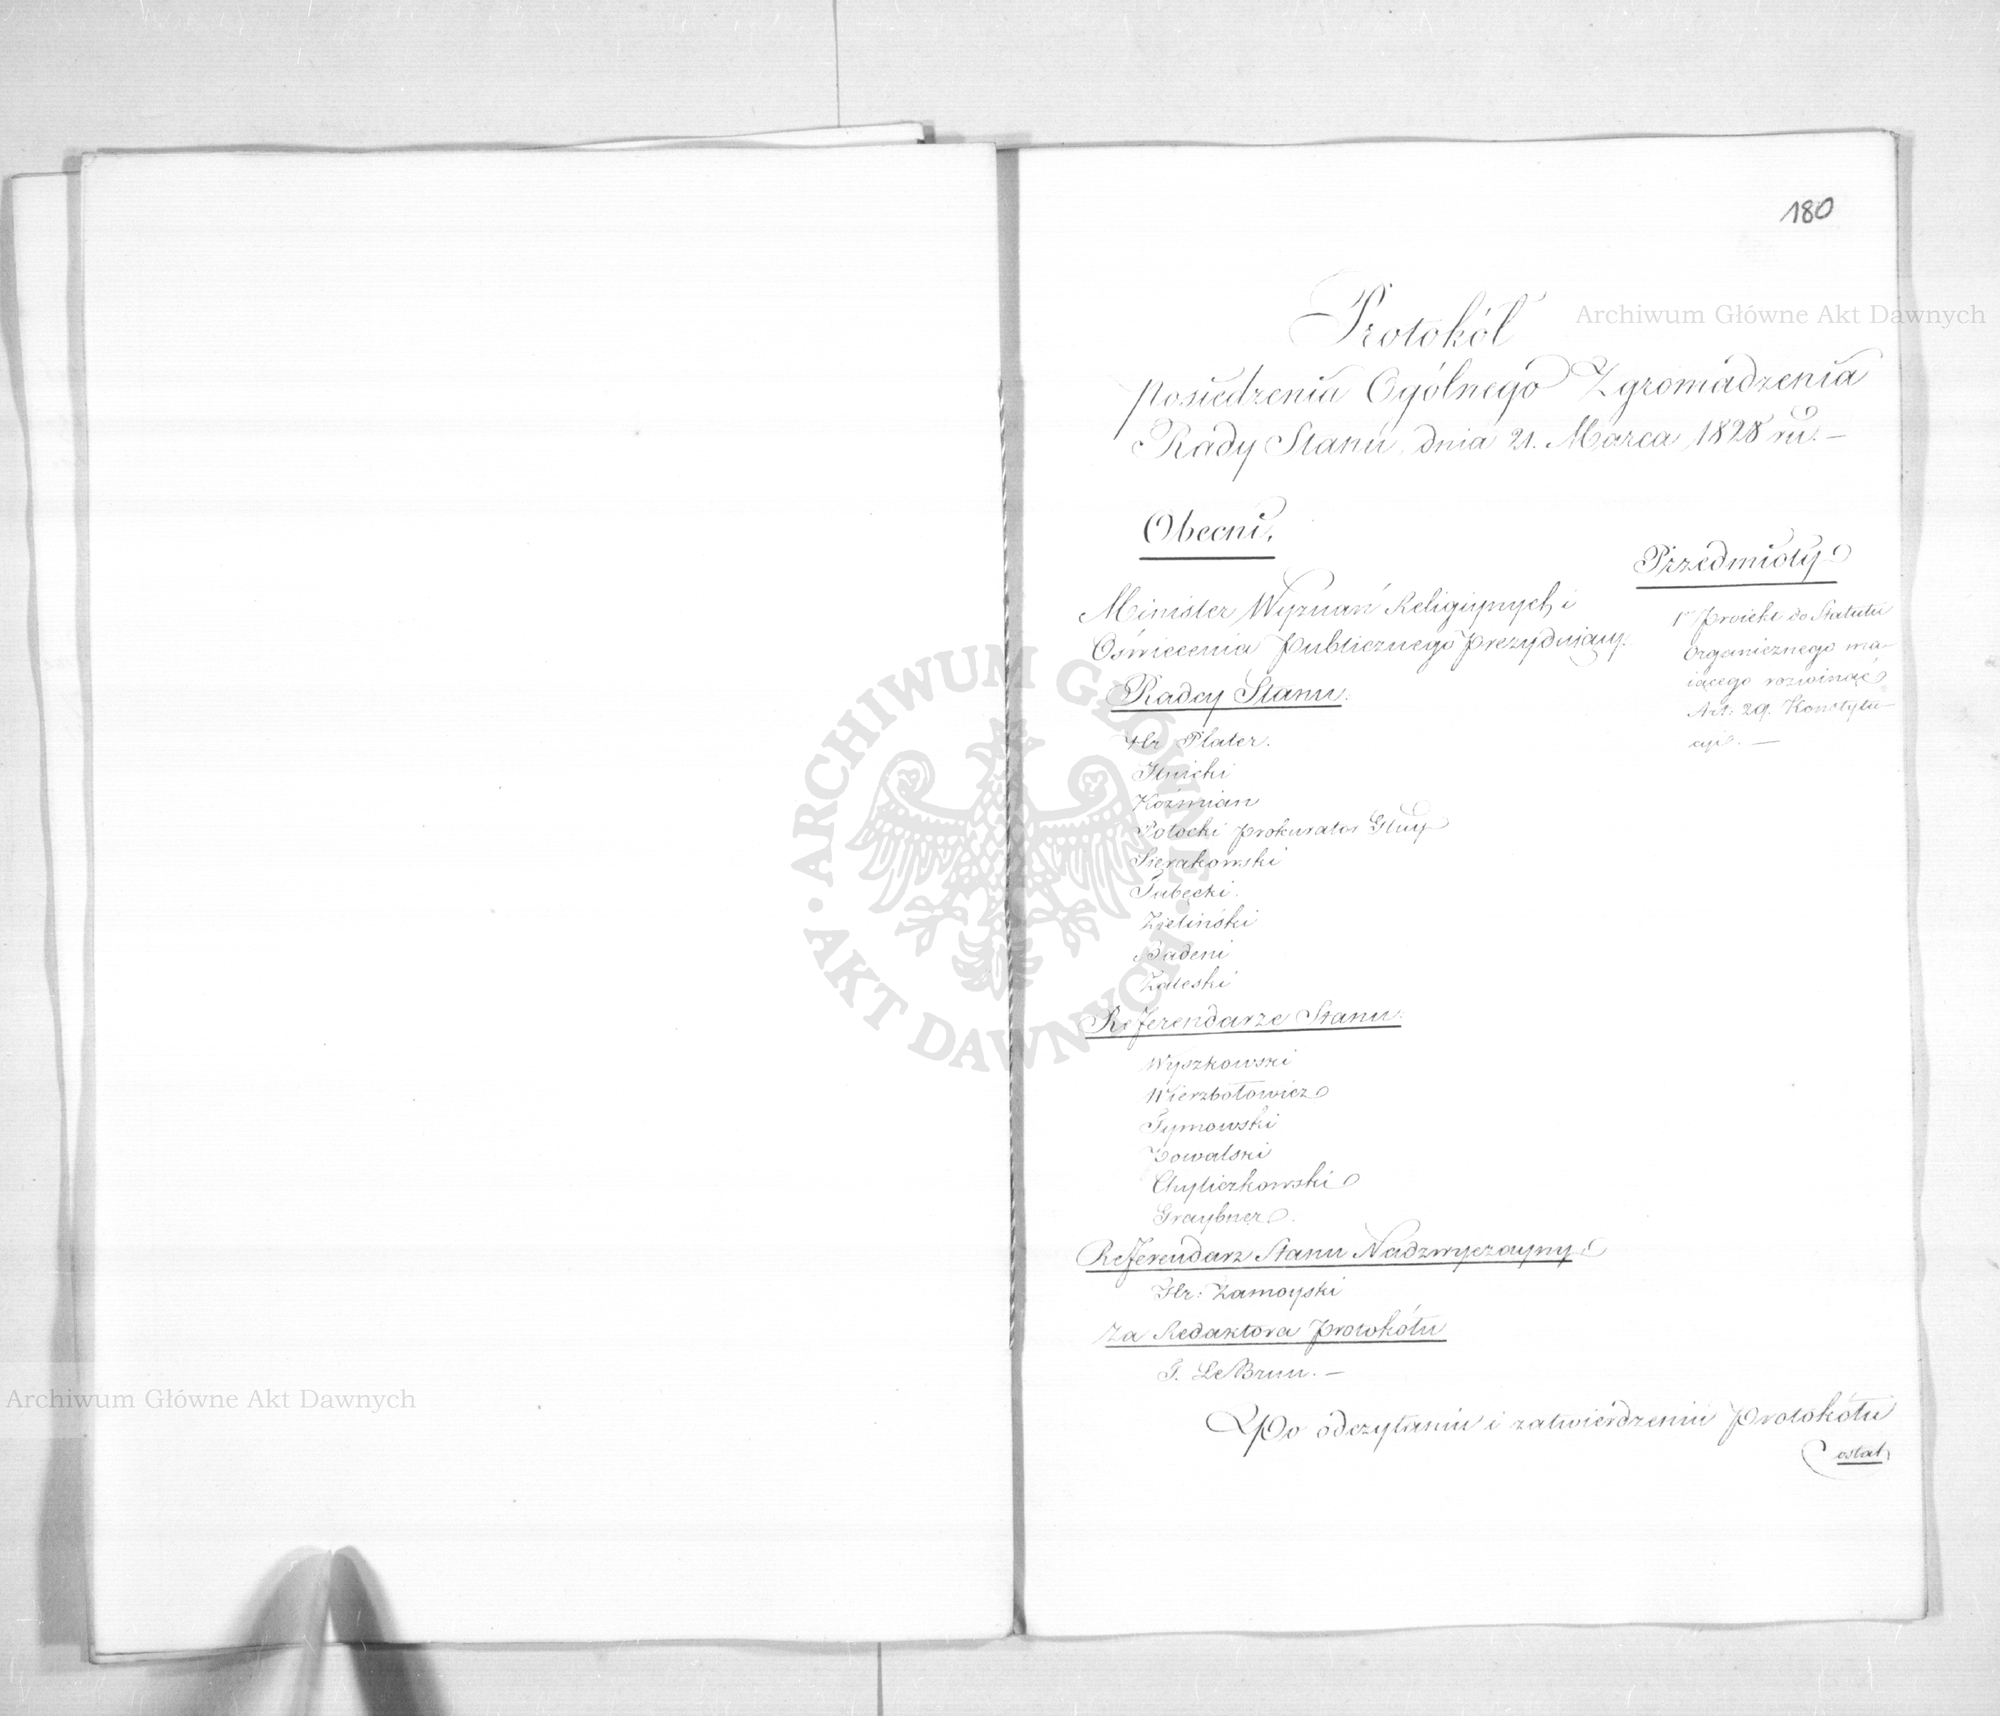 180
Protokół
posiedzenia Ogólnego Zgromadzenia
Rady Stanu dnia 21. Marca 1828 ru. —
Obecni.
Minister Wyznań Religiynych i
Oświecenia Publicznego Prezyduiący.
Radcy Stanu.
Hr Plater.
Koźmian
Potocki Prokurator Glny
Sierakowski
Tabęcki.
Zieliński
Badeni
Zaleski
Referendarze Stanu.
Wyszkowski
Wierzbołowicz
Tymowski
Kowalski
Chyliczkowski
Graybner.
Referendarz Stanu Nadzwyczayny.
Hr: Zamoyski
Za Redaktora Protokółu
T. LeBrun. —
Przedmioty
1° Proiekt do Statutu
Organicznego ma-
iącego rozwinąć
Art: 29. Konstytu-
cyi. —
Po odczytaniu i zatwierdzeniu Protokółu
ostat
Archiwum Główne Akt Dawnych
ARCHIWUM GŁÓWNE AKT DAWNYCH
Archiwum Główne Akt Dawnych